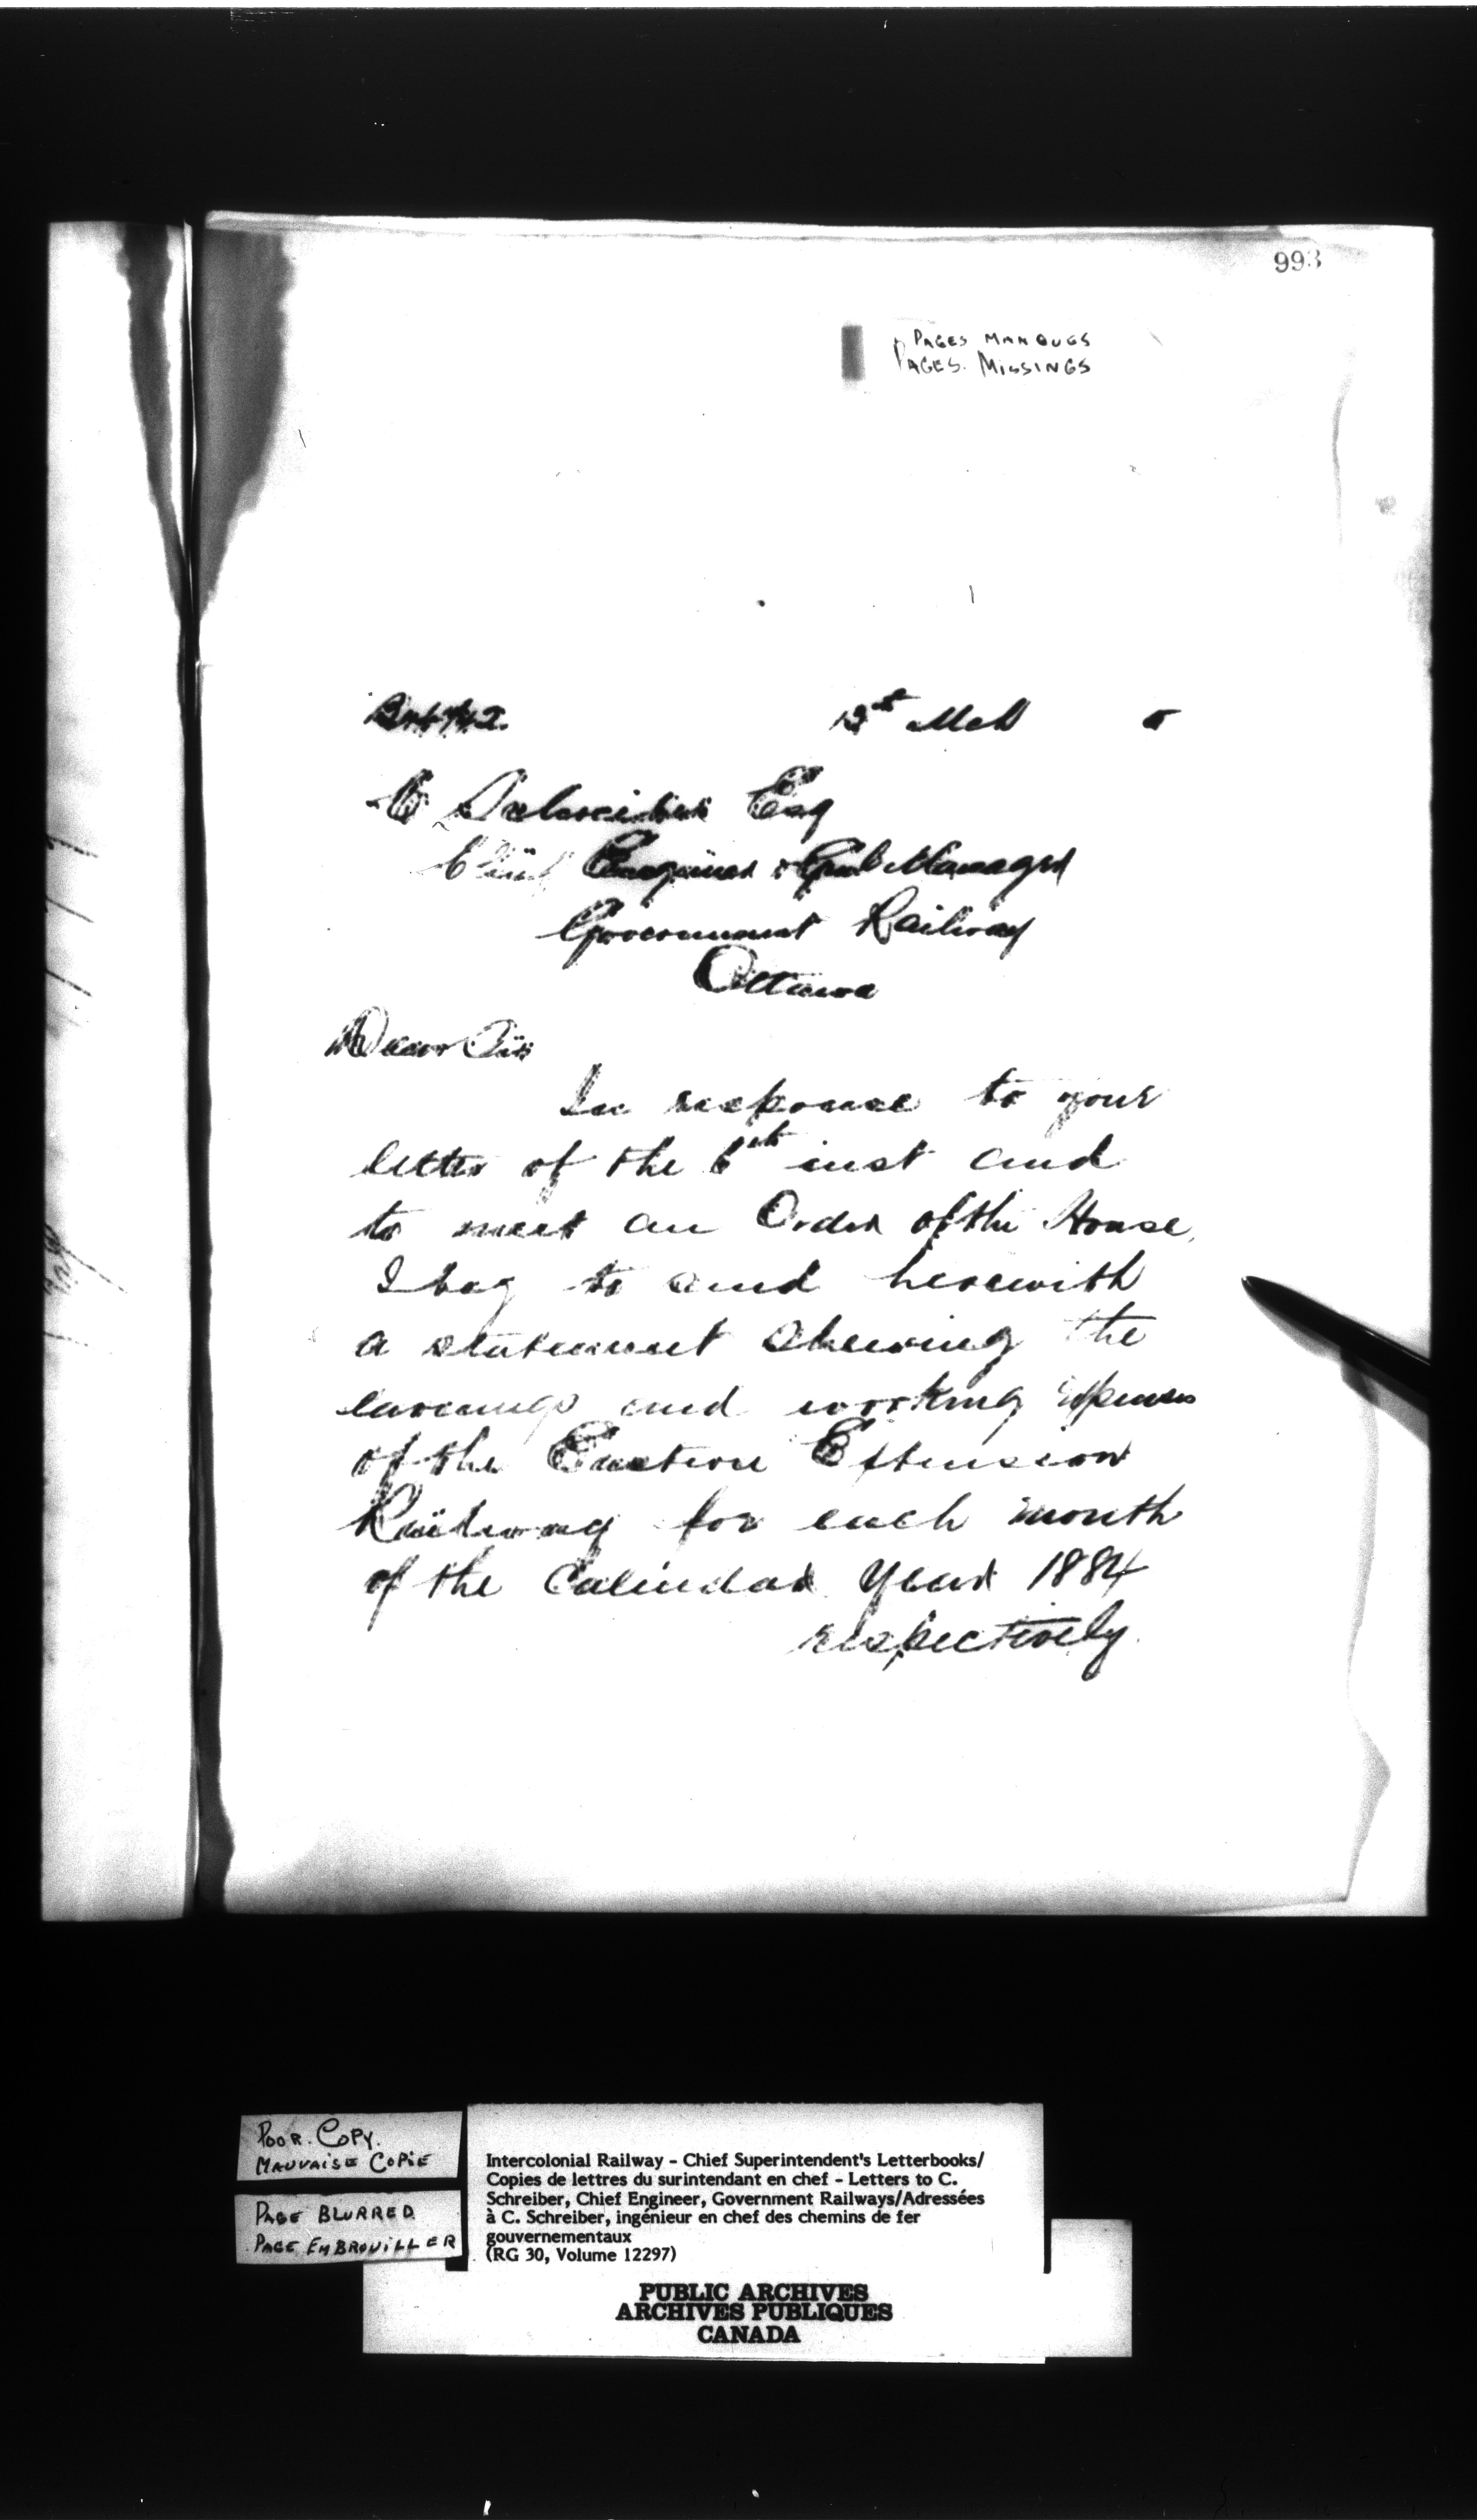 993
PAGES MANQUES
PAGES. MISSINGS
12th Mch 5
C Schreiber Esq
Chief Engineer & Genl Manager
Government Railway
Ottawa
Dear Sir
In response to your
letter of the 6th inst and
to meet an Order of the House,
I beg to send herewith
a statement shewing the
earnings and working expenses
of the Eastern Extension
Railway for each month
of the Calendar Year 1884
respectively.
POOR. COPY.
MAUVAISE COPIE
PAGE BLURRED.
PAGE EMBROUILLER
Intercolonial Railway - Chief Superintendent's Letterbooks/
Copies de lettres du surintendant en chef - Letters to C.
Schreiber, Chief Engineer, Government Railways/Adressées
à C. Schreiber, ingénieur en chef des chemins de fer
gouvernementaux
(RG 30, Volume 12297)
PUBLIC ARCHIVES
ARCHIVES PUBLIQUES
CANADA